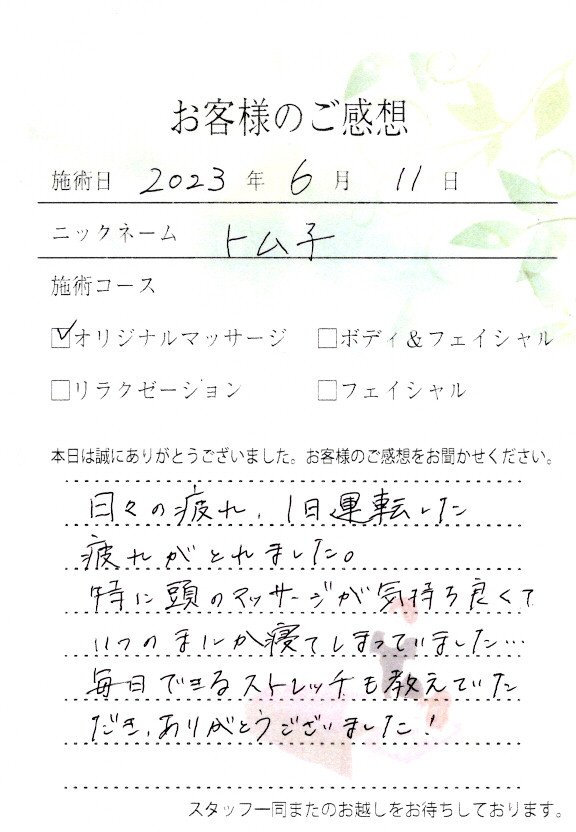 お客様のご感想
施術日 2023 年 6 月 11 日
ニックネーム トム子
施術コース
オリジナルマッサージ ボディ&フェイシャル
リラクゼーション フェイシャル
本日は誠にありがとうございました。お客様のご感想をお聞かせください。
日々の疲れ、1日運転した
疲れがとれました。
特に頭のマッサージが気持ち良くて
いつのまにか寝てしまっていました…
毎日できるストレッチも教えていた
だき、ありがとうございました!
スタッフ一同またのお越しをお待ちしております。